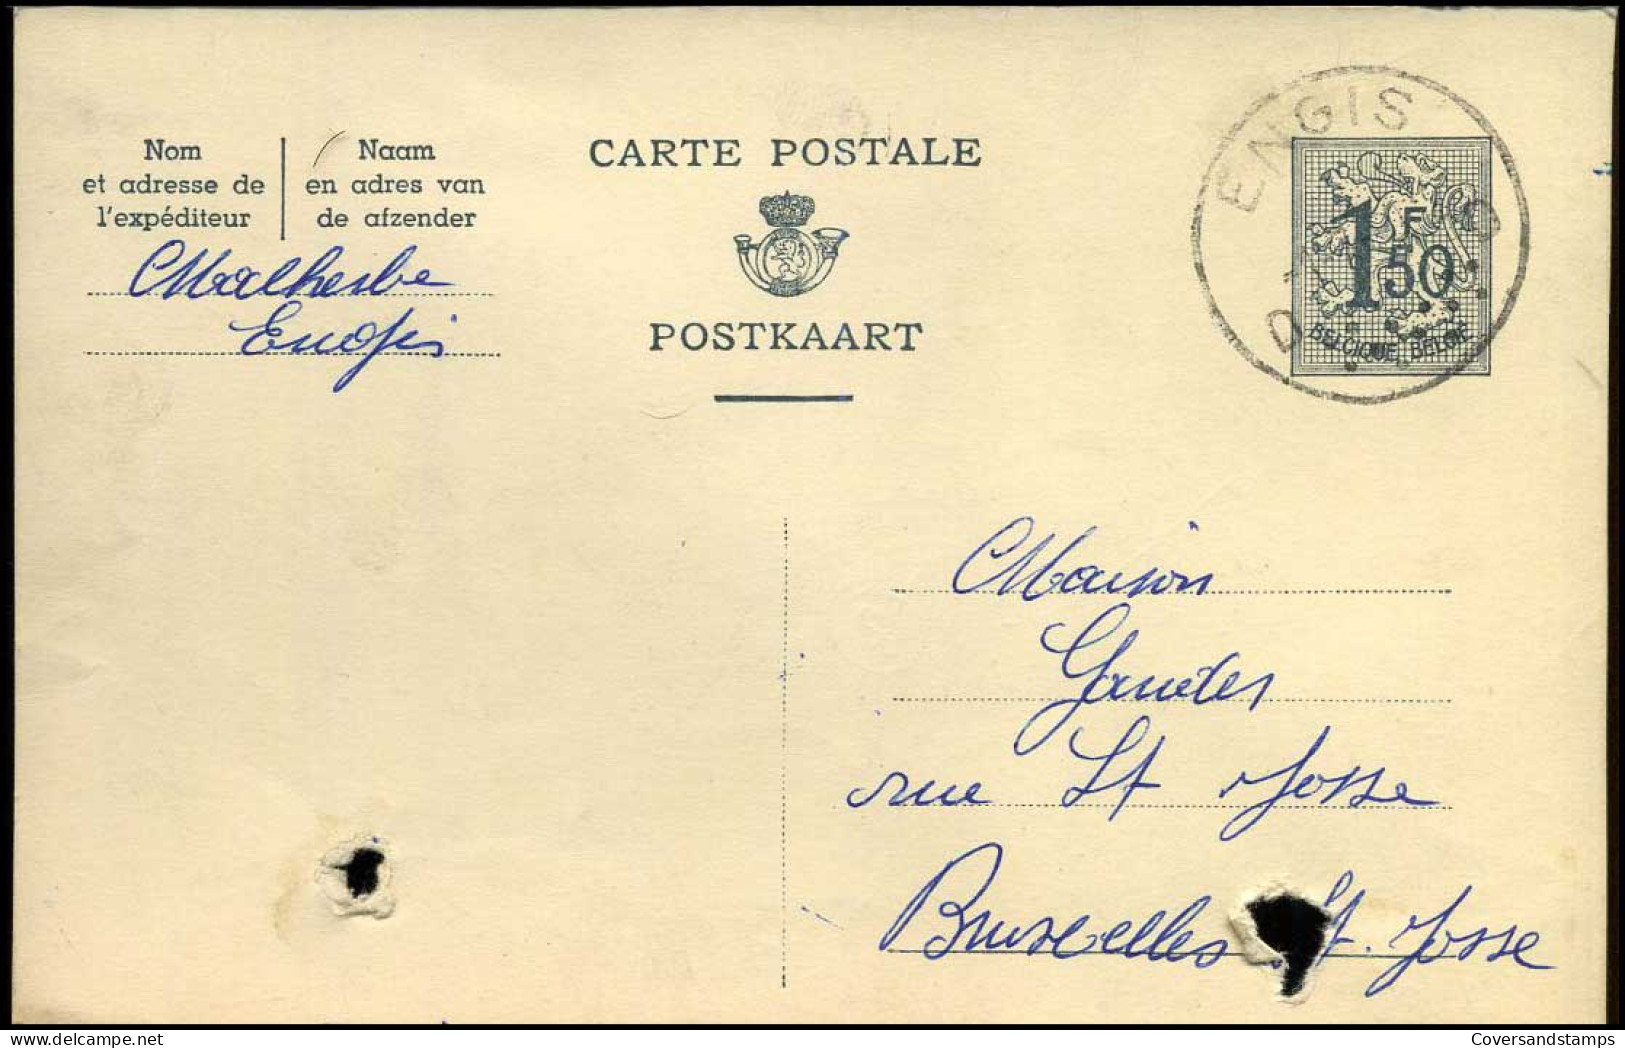 Nom
et adresse de
l'expéditeur
Naam
en adres van
de afzender
Malherbe
Engis
CARTE POSTALE
POSTKAART
ENGIS
D
1F50
BELGIQUE BELGIE
Maison
rue St Josse
Bruxelles St. Josse
Coversandstamps